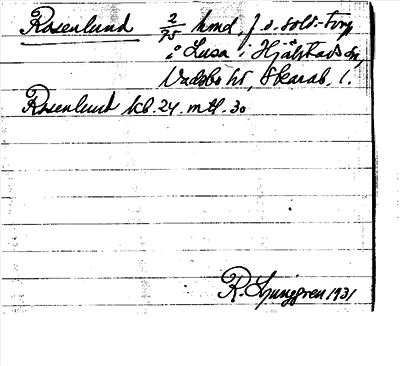 Rosenlund 2/75 hmd, f. d. sold.-torp
å Lusa i Hjälstads sn,
Vadsbo hd, Skarab. l.
Rosenlund kb. 24. mtl. 30
R. Ljunggren 1931